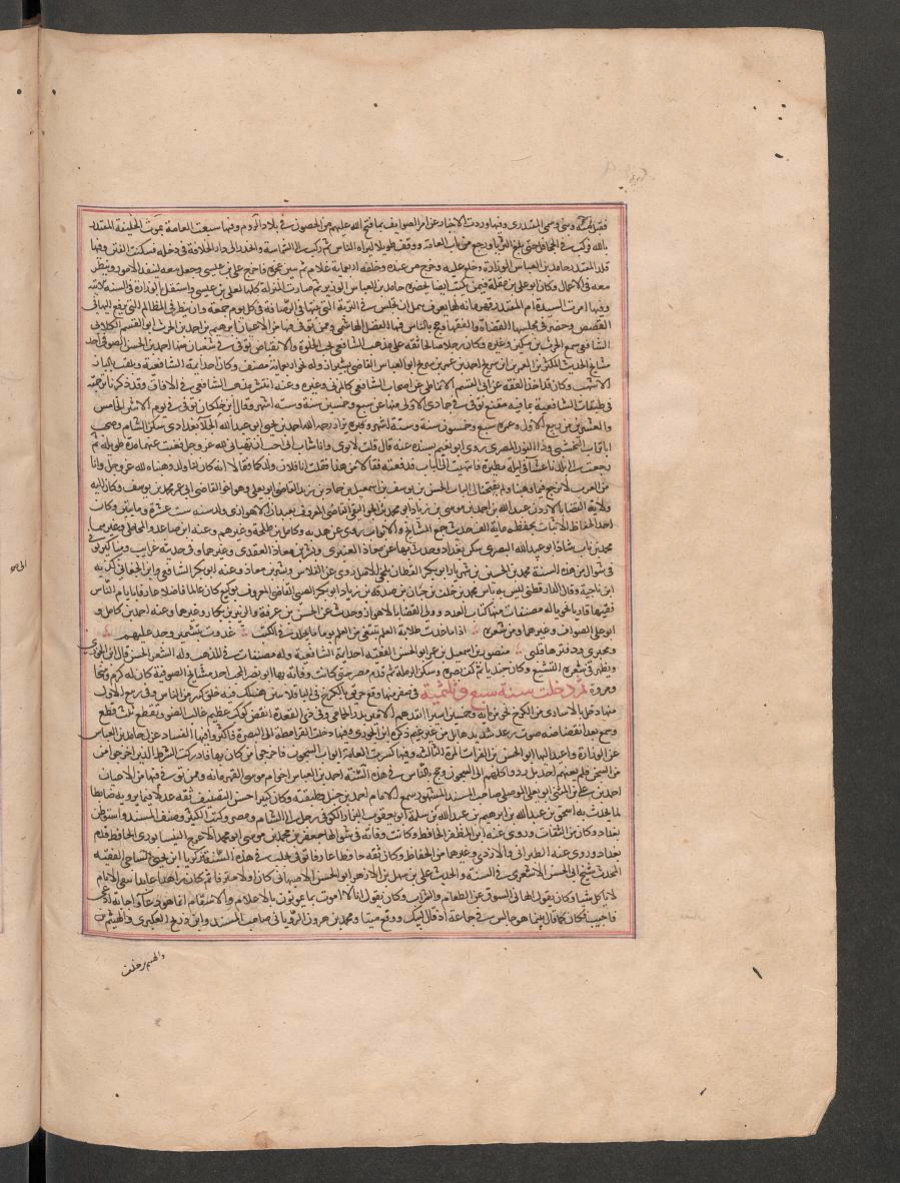 وفيها وردت الاخبار عن امر الصوايف بما فتح الله عليهم من الحصون في بلاد الروم وفيها شيعت العامة بموت الخليفة المقتدر
بالله فركب في الجحافل حتى بلغ الثريا ورجع من باب العامة ووقف طويلا ليراه الناس ثم ركب الى الشماسية وانحدر الى دار الخلافة في دجلة فسكنت الفتن وفيها
قلد المقتدر حامد بن العباس الوزارة وخلع عليه وخرج من عنده وخلفه اربعماية غلام ثم تبين عجزه فاخرج علي بن عيسى وجعل معه لينفذ الامور وينظر
معه في الاعمال وكان ابو علي بن مقلة فيمن يكتب ايضا بحضرة حامد بن العباس الوزير ثم صارت المنزلة كلها لعلي بن عيسى واستقل بالوزارة في السنة الاتية
وفيها امرت السيدة ام المقتدر قهرمانة لها تعرف بثمل ان تجلس في التربة التي بنتها في الرصافة في كل يوم جمعة وان تنظر في المظالم التي ترفع اليها في
القصص وحضر في مجلسها القضاة والفقها وحج بالناس فيها الفضل الهاشمي وممن توفي فيها من الاعيان ابرهيم بن احمد بن الحرث ابو القسم الكلابي
الشافعي سمع الحرث بن مسكين وغيره وكان رجلا صالحا تفقه على مذهب الشافعي يحب الخلوة والانقباض توفي في شعبان منها احمد بن الحسن الصوفي احد
مشايخ الحديث المكثرين المعمرين ابن سريج احمد بن عمر بن سريج ابو العباس القاضي بشيراز وله نحو اربعماية مصنف وكان احد ائمة الشافعية ويلقب بالباز
الاشهب وكان قد اخذ الفقه عن ابي القسم الانماطي وعن اصحاب الشافعي كالمزني وغيره وعنه انتشر مذهب الشافعي في الافاق وقد ذكرنا ترجمته
في طبقات الشافعية بما فيه مقنع توفي في جمادى الاولى منها عن سبع وخمسين سنة وستة اشهر وقال ابن خلكان توفي في يوم الاثنين الخامس
والعشرين من ربيع الاول وعمره سبع وخمسون سنة وستة اشهر وقبره يزار رحمه الله احمد بن يحيى ابو عبد الله الجلاء بغدادي سكن الشام وصحب
ابا تراب النخشبي وذا النون المصري روى ابو نعيم بسنده عنه قال قلت لابوي وانا شاب اني احب ان تهباني لله عز وجل فغبت عنهما مدة طويلة ثم
رجعت الى بلدنا عشا في ليلة مطيرة فانتهيت الى الباب فدققته فقالا من هذا فقلت انا فلان ولدكما فقالا انه كان لنا ولد وهبناه لله عز وجل وانا
من العرب لا نرجع فيما وهبنا ولم يفتحا لي الباب الحسن بن يوسف بن اسمعيل بن حماد بن زيد القاضي ابو يعلى وهو اخو القاضي ابي عمر محمد بن يوسف وكان اليه
ولاية القضاء بالاردن عبد الله بن احمد بن موسى بن زياد ابو محمد الجواليقي القاضي المعروف بعبدان الاهوازي ولد سنة ست عشرة ومايتين وكان
احد الحفاظ الاثبات يحفظ ماية الف حديث جمع المشايخ والابواب روى عن هدبة وكامل بن طلحة وغيرهم وعنه ابن صاعد والمحاملي وغيرهما
محمد بن باب شاذ ابو عبد الله البصري سكن بغداد وحدث بها عن معاذ العنبري وبشر بن معاذ العقدي وغيرهما وفي حديثه غرايب ومناكير توفي
في شوال من هذه السنة محمد بن الحسين بن شهريار ابو بكر القطان بلخي الاصل روى عن الفلاس وبشر بن معاذ وعنه ابو بكر الشافعي وابن الجعابي كذبه
ابن ناجية وقال الدارقطني ليس به باس محمد بن خلف بن حيان بن صدقة بن زياد ابو بكر الضبي القاضي المعروف بوكيع كان عالما فاضلا عارفا بايام الناس
فقيها قاريا نحويا له مصنفات منها كتاب العدد وولي القضاء بالاهواز وحدث عن الحسن بن عرفة والزبير بن بكار وغيرهما وعنه احمد بن كامل و
ابو علي الصواف وغيرهما ومن شعره اذا ما غدت طلابة العلم تبتغي من العلم يوما ما يخلد في الكتب غدوت بتشمير وجد عليهم
ومحبرتي ودفترها قلبي منصور بن اسمعيل بن عمر ابو الحسن الفقيه احد ايمة الشافعية وله مصنفات في المذهب وله الشعر الحسن قال ابن الجوزي
ويظهر في شعره التشيع وكان جنديا ثم كف بصره وسكن الرملة ثم قدم مصر حتى كانت وفاته بها ابو نصر المحب احد مشايخ الصوفية كان له كرم وسخا
ومروة ثم دخلت سنة سبع وثلثمية في صفر منها وقع حريق بالكرخ في الباقلانيين هلك فيه خلق كثير من الناس وفي ربيع الاول
منها دخل بالاسارى من الكرخ نحو من ماية وخمسين اسيرا انقذهم الامير بدر الحمامي وفي ذي القعدة انقض كوكب عظيم غالب الضو وتقطع ثلث قطع
وسمع بعد انقضاضه صوت رعد شديد هايل من غير غيم ذكره ابن الجوزي وفيها دخلت القرامطة الى البصرة فاكثروا فيها الفساد عزل حامد بن العباس
عن الوزارة واعيد اليها ابو الحسن بن الفرات المرة الثالثة وفيها كسرت العامة ابواب السجون فاخرجوا من كان بها فادركت الشرط الذين اخرجوا من
السجن فلم يفتهم احد بل ردوا كلهم الى السجون وحج بالناس في هذه السنة احمد بن العباس اخو ام موسى القهرمانة وممن توفي فيها من الاعيان
احمد بن علي بن المثنى ابو يعلى الموصلي صاحب المسند المشهور سمع الامام احمد بن حنبل وطبقته وكان كبيرا حسن التصنيف ثقة عدلا فيما يرويه ضابطا
لما يحدث به اسحق بن عبد الله بن ابرهيم بن عبد الله بن سلمة ابو يعقوب البزار الكوفي رحل الى الشام ومصر وكتب الكثير وصنف المسند واستوطن
بغداد وكان من الثقات وروى عنه ابن المظفر الحافظ وكانت وفاته في شوالها جعفر بن محمد بن موسى ابو محمد الاعرج النيسابوري الحافظ قدم
بغداد وروى عنه الطبراني والازدي وغيرهما من الحفاظ وكان ثقة حافظا عارفا توفي بحلب في هذه السنة زكريا ابن يحيى الساجي الفقيه
المحدث شيخ ابي الحسن الاشعري في السنة والحديث علي بن سهل بن الازهر ابو الحسن الاصبهاني كان اولا مترفا ثم كان زاهدا عابدا يبقى الايام
لا ياكل شيا وكان يقول الهاني الشوق عن الطعام والشراب وكان يقول انا لا اموت بما يموتون بالاعلام والاسقام انما هو دعا واجابة ادعى
فاجيب فكان كما قال بينما هو جالس في جماعة اذ قال لبيك ووقع ميتا ومحمد بن هرون الروياني صاحب المسند وابن ذريح العكبري والهيثم بن
والهيثم بن خلف